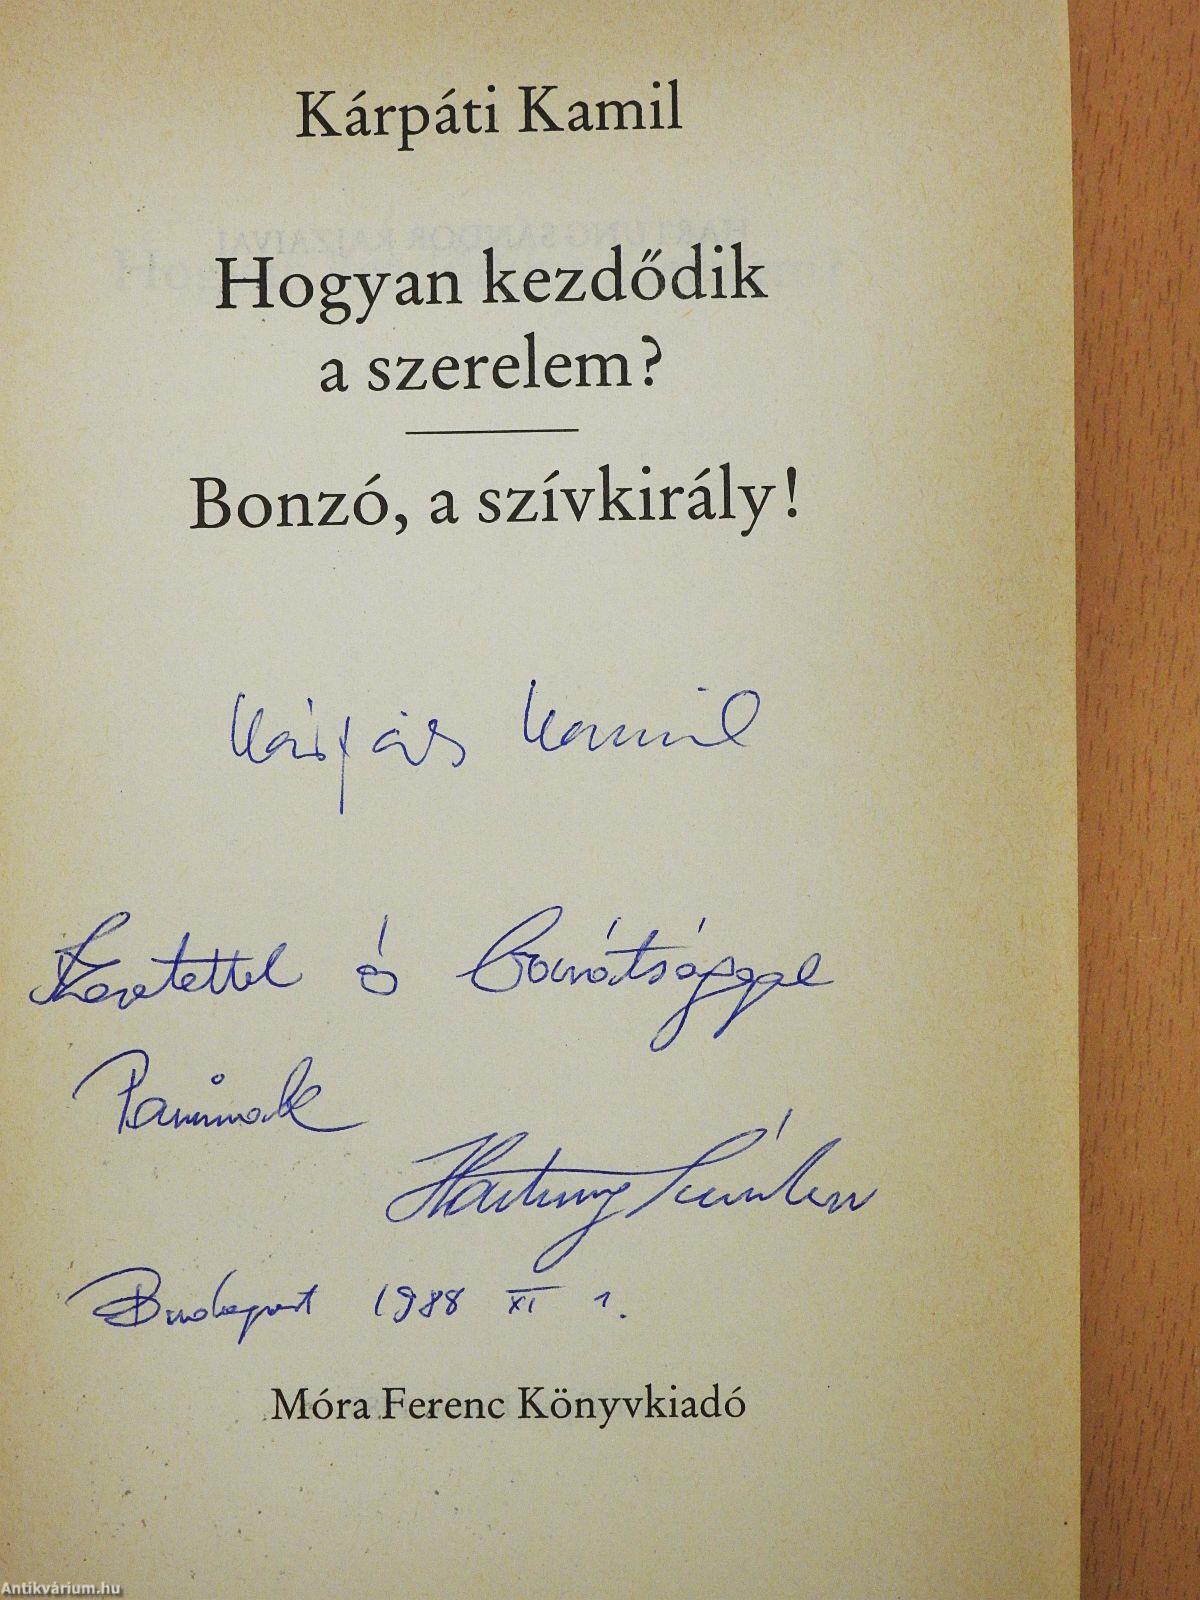 Kárpáti Kamil
HARTUNG SÁNDOR RAJZAIVAL
Hogyan kezdődik
a szerelem?
Bonzó, a szívkirály!
Kárpáti Kamil
Szeretettel és barátsággal
Hartung Sándor
Budapest 1988 XI 1.
Móra Ferenc Könyvkiadó
Antikvárium.hu